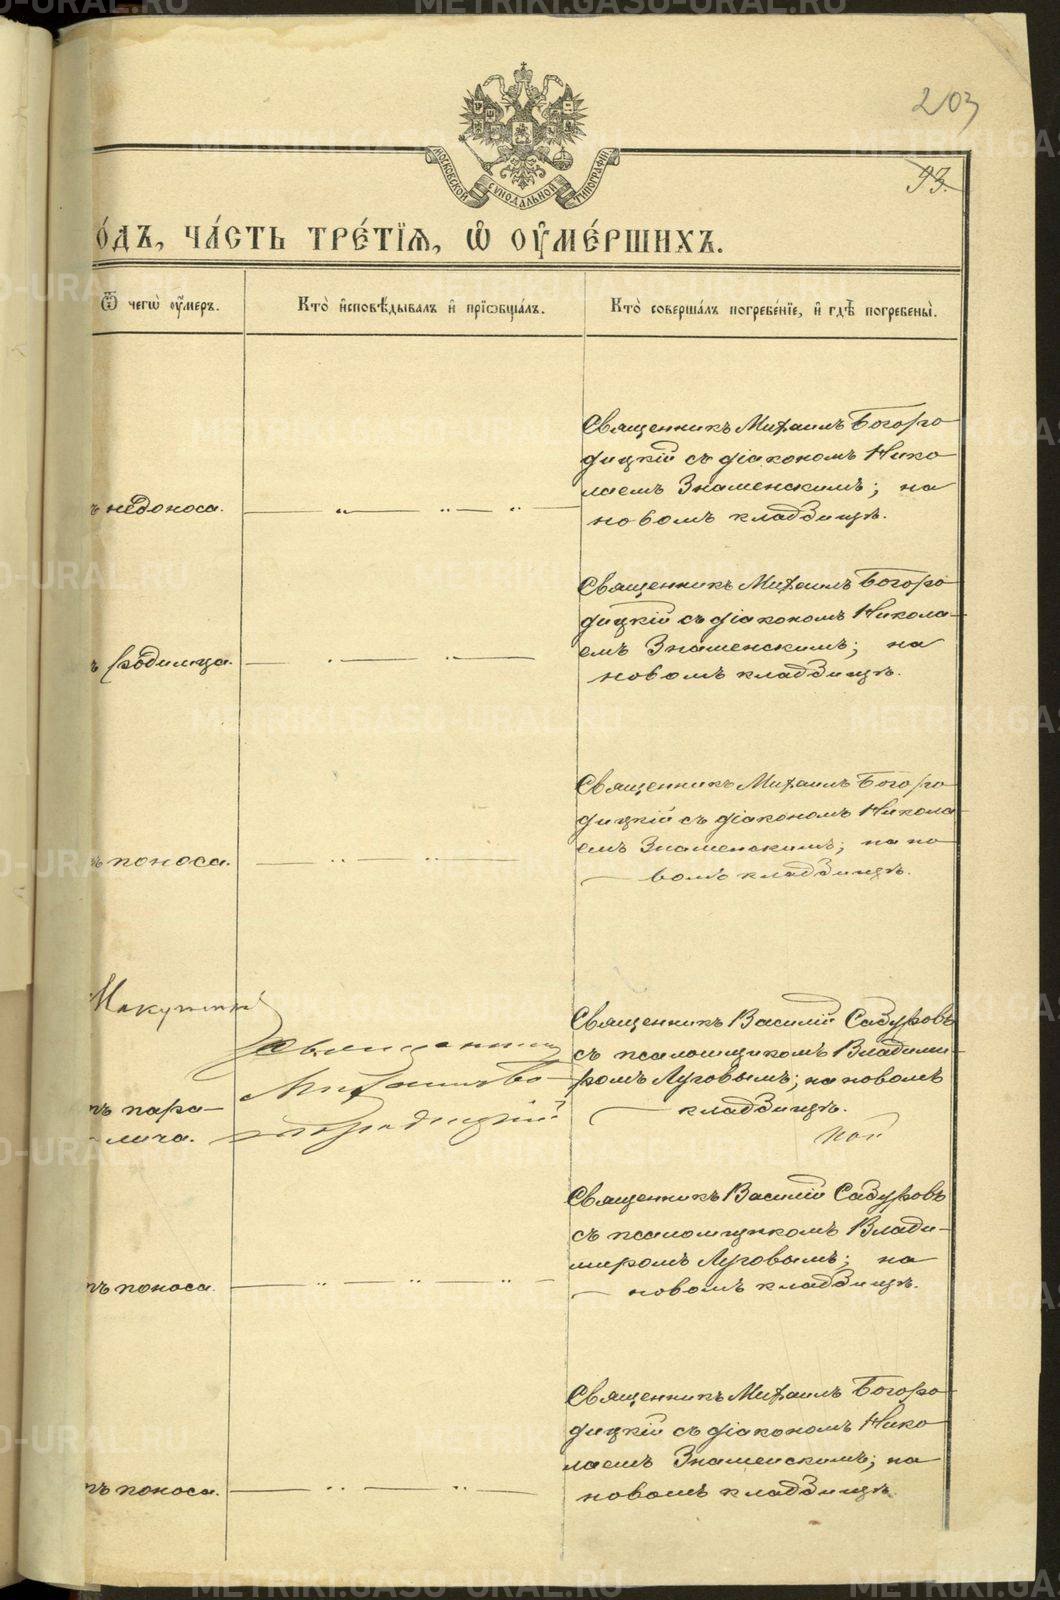 203
93.
МОСКОВСКОЙ СѴНОДАЛЬНОЙ ТИПОГРАФІИ
О́ДЪ, ЧА́СТЬ ТРЕ́ТІѦ, Ѡ҆ ОУ҆МЕ́РШИХЪ.
Ѿ чегѡ̀ оу҆́меръ.
Кто̀ и҆сповѣ́дывалъ и҆ прїѡбща́лъ.
Кто̀ соверша́лъ погребе́нїе, и҆ гдѣ̀ погребены̀.
ъ недоноса.
Священникъ Михаилъ Богоро
дицкій съ діакономъ Нико
лаемъ Знаменскимъ; на
новомъ кладбищѣ.
ъ родимца.
Священникъ Михаилъ Богоро
дицкій съ діакономъ Никола-
емъ Знаменскимъ; на
новомъ кладбищѣ.
ъ поноса.
Священникъ Михаилъ Богоро
дицкій съ діакономъ Никола
емъ Знаменскимъ; на но
вомъ кладбищѣ.
тъ пара-
лича.
Священникъ
Михаилъ Бо-
городицкій
Священникъ Василій Садуровъ
съ псаломщикомъ Владими-
ромъ Луговымъ; на новомъ
кладбищѣ.
тъ поноса.
Священникъ Василій Садуровъ
съ псаломщикомъ Влади-
миромъ Луговымъ; на
новомъ кладбищѣ.
тъ поноса.
Священникъ Михаилъ Богоро
дицкій съ діакономъ Нико
лаемъ Знаменскимъ; на
новомъ кладбищѣ.
METRIKI.GASO-URAL.RU